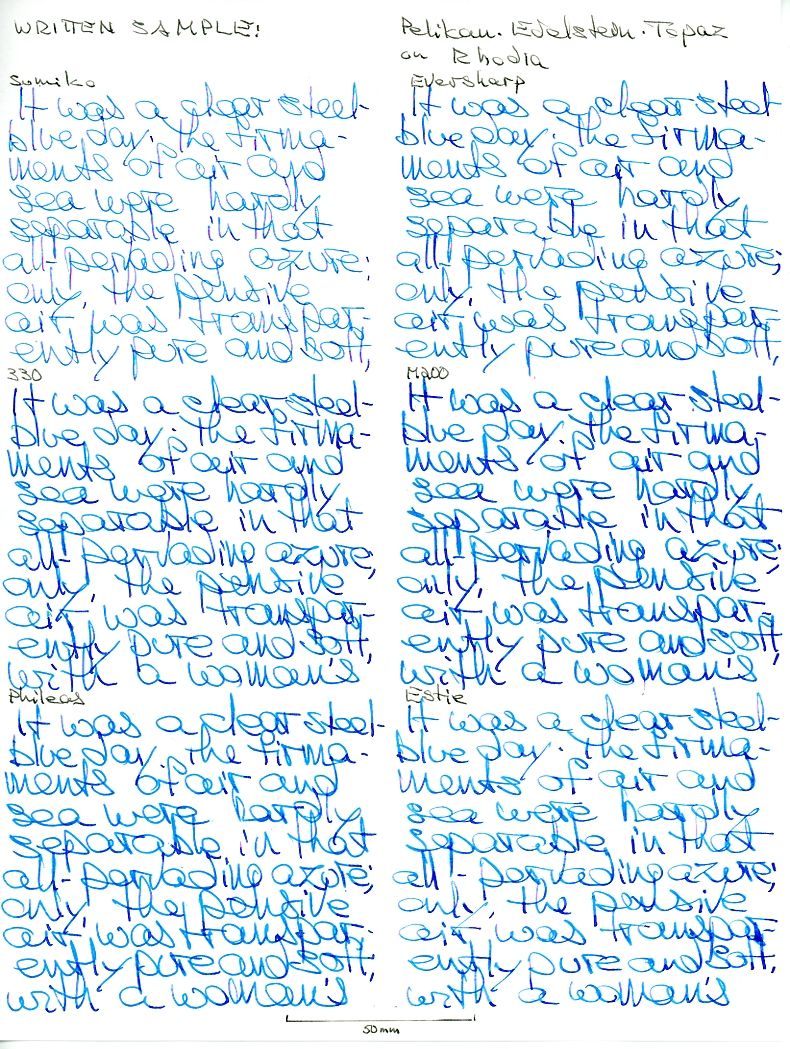 WRITTEN SAMPLE:
Pelikan. Edelstein. Topaz
on Rhodia
Sumiko
It was a clear steel-
blue day. The firma-
ments of air and
sea were hardly
separable in that
all-pervading azure;
only, the pensive
air was transpar-
ently pure and soft,
Eversharp
It was a clear steel
blue day. The firma-
ments of air and
sea were hardly
separable in that
all-pervading azure;
only, the pensive
air was transpar-
ently pure and soft,
330
It was a clear steel-
blue day. The firma-
ments of air and
sea were hardly
separable in that
all-pervading azure;
only, the pensive
air was transpar-
ently pure and soft,
with a woman's
M200
It was a clear steel-
blue day. The firma-
ments of air and
sea were hardly
separable in that
all-pervading azure;
only, the pensive
air was transpar-
ently pure and soft,
with a woman's
Phileas
It was a clear steel-
blue day. The firma-
ments of air and
sea were hardly
separable in that
all-pervading azure;
only, the pensive
air was transpar-
ently pure and soft,
with a woman's
Estie
It was a clear steel-
blue day. The firma-
ments of air and
sea were hardly
separable in that
all-pervading azure;
only, the pensive
air was transpar-
ently pure and soft,
with a woman's
50mm